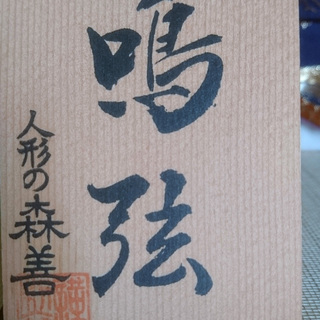 鳴弦
人形の森善